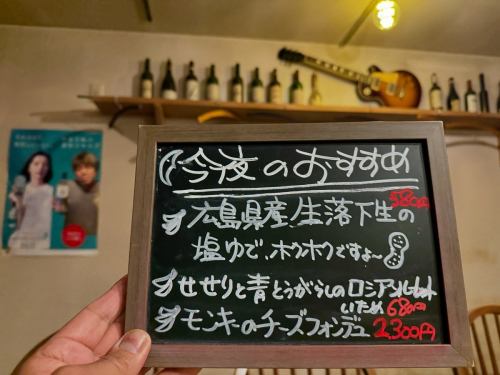 今夜のおすすめ
広島県産生落下生の 580円
塩ゆで、ホクホクですよ〜
せせりと青とうがらしのロシアンルーレット
いため 680円
モンキーのチーズフォンデュ 2300円